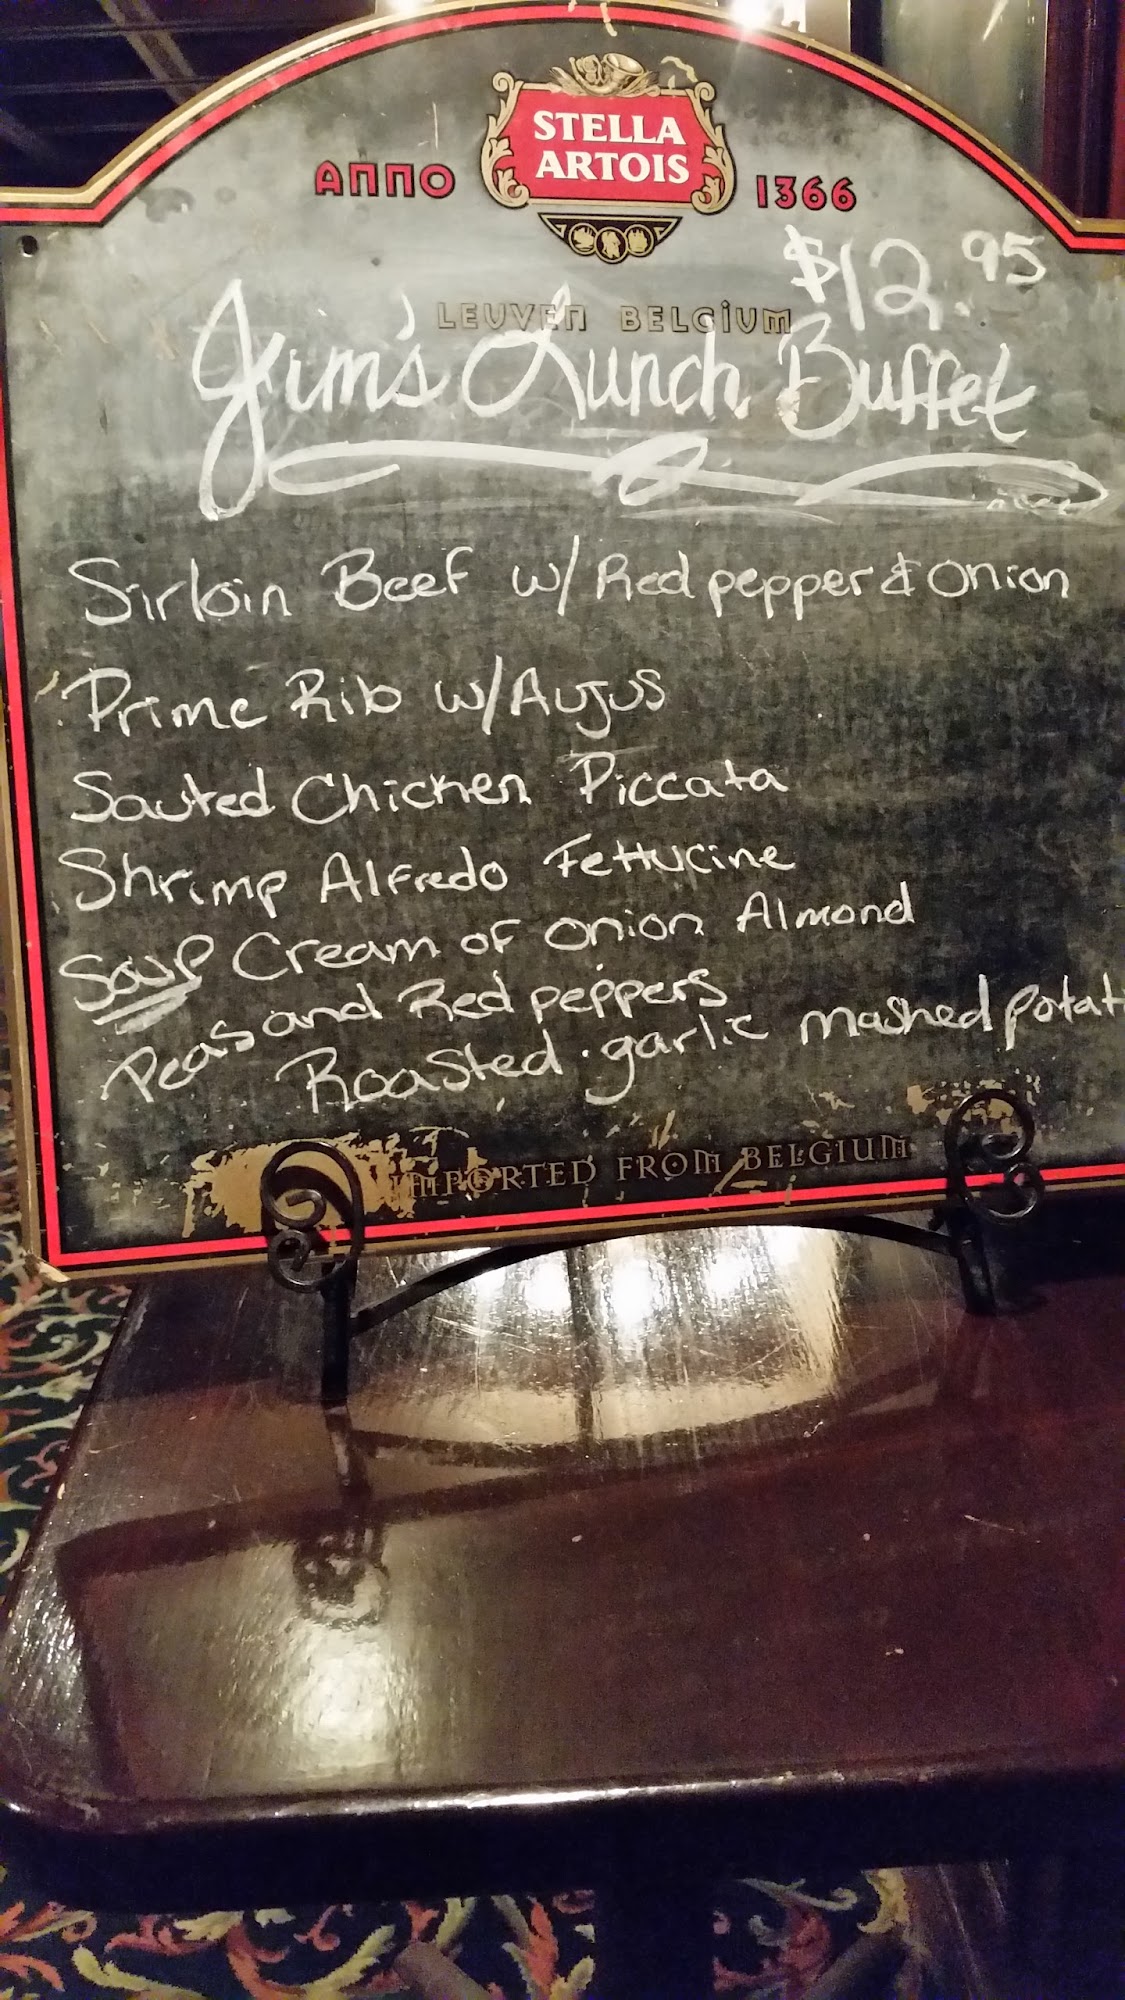 STELLA
ARTOIS
ANNO 1366
$12.95
LEUVEN BELGIUM
Jim's Lunch Buffet
Sirloin Beef w/ Red pepper & Onion
Prime Rib w/ Aujus
Sauted Chicken Piccata
Shrimp Alfredo Fettucine
Soup Cream of Onion Almond
Peas and Red peppers
Roasted garlic mashed Potat
IMPORTED FROM BELGIUM